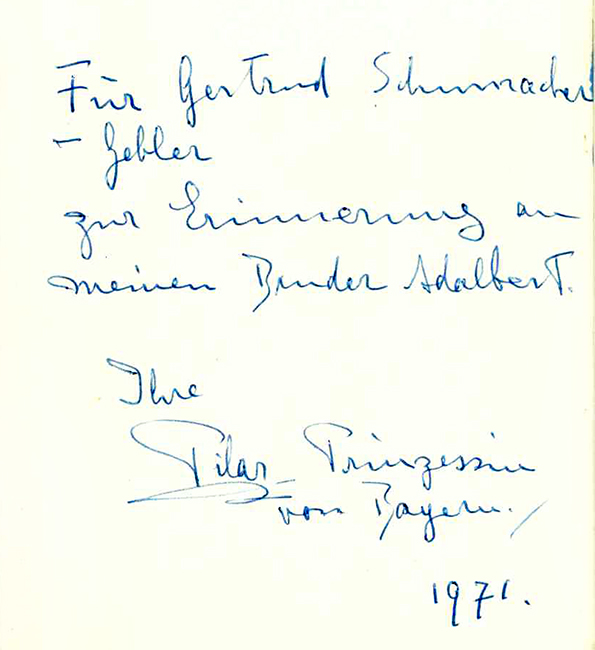 Für Gertrud Schumacher
- Gebler
zur Erinnerung an
meinen Bruder Adalbert.
Ihre
Pilar Prinzessin
von Bayern.
1971.